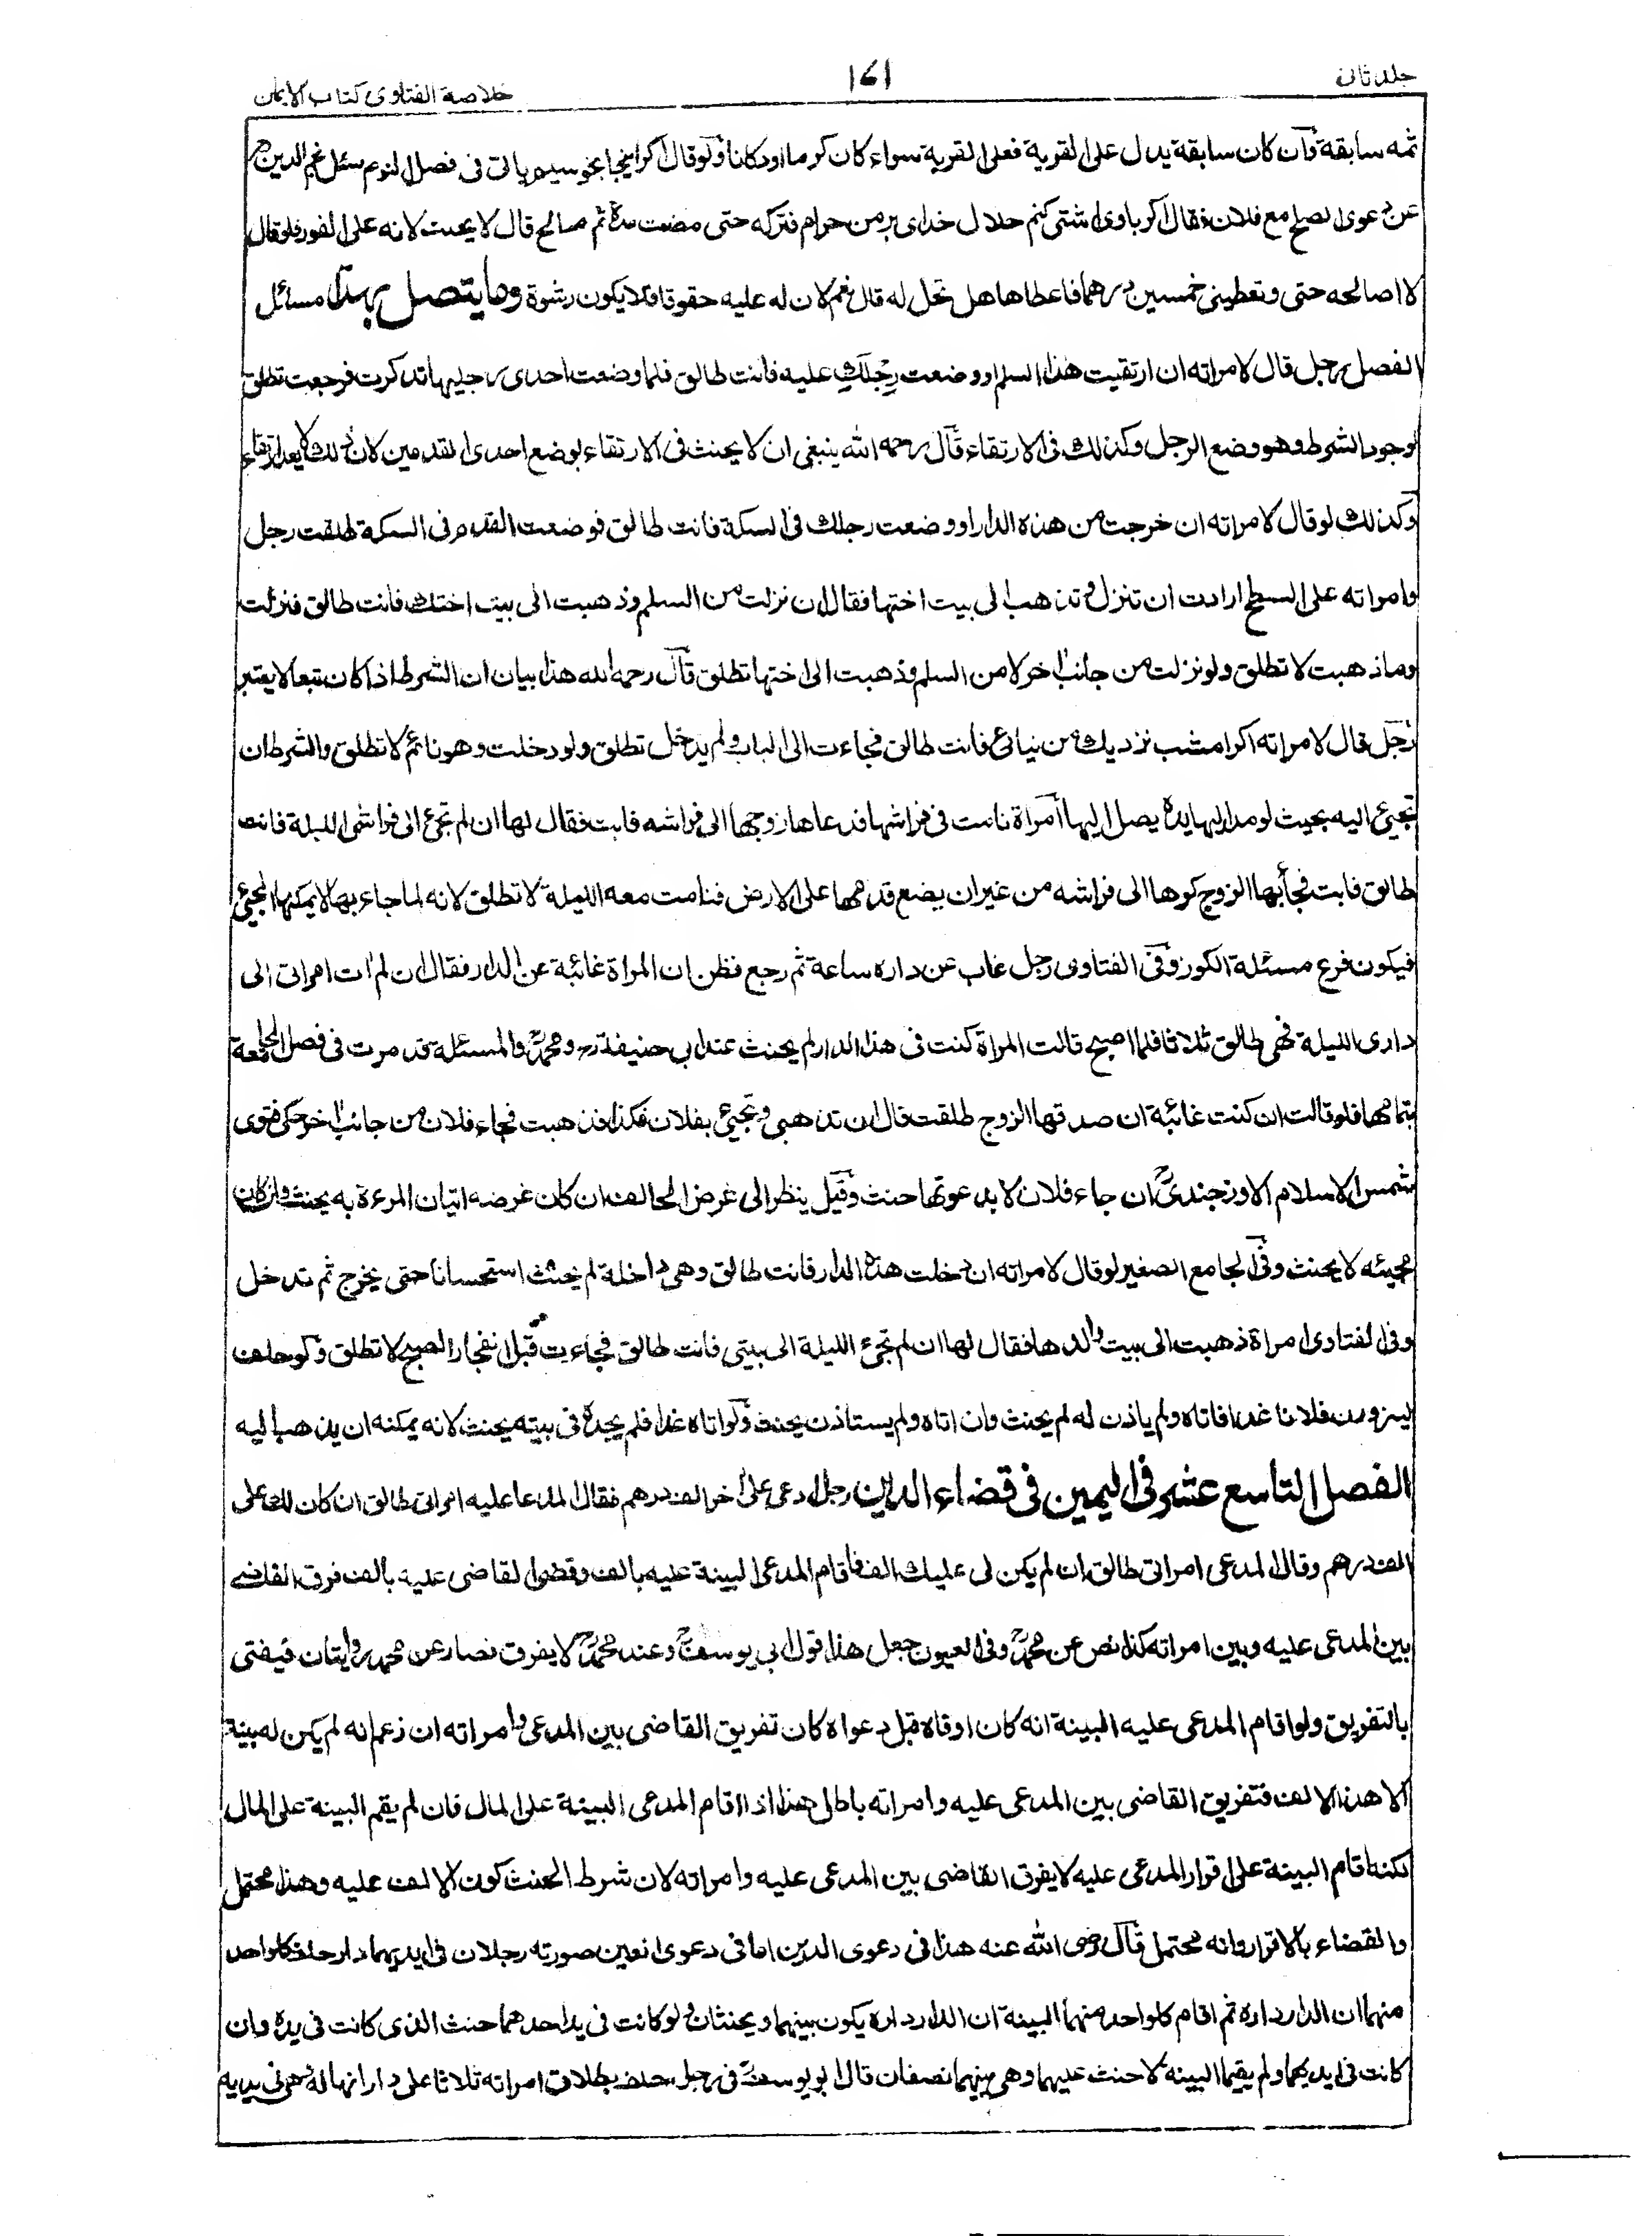 جلد ثانی
۱۶۱
خلاصة الفتاوی کتاب الایمان
ثمه سابقة وان كان سابقة يدل على القرية فعلى القرية سواء كان كرما او دكانا ولو قال اكر اينجا في فصل النوم سئل نجم الدين رح
عن دعوى الصلح مع فلان فقال اكر باوى اشتى كنم حلال خداى بر من حرام فتركه حتى مضت مدة ثم صالح قال لا يحنث لانه على الفور فلو قال
لا اصالحه حتى وتعطينى خمسين درهما فاعطاها هل تحل له قال نعم لان له عليه حقوقا فلا يكون رشوة وما يتصل بهذا مسائل
الفصل رجل قال لامراته ان ارتقيت هذا السلم او وضعت رجلك عليه فانت طالق فلما وضعت احدى رجليها تذكرت فرجعت تطلق
لوجود الشرط وهو وضع الرجل وكذلك فى الارتقاء قال رحمه الله ينبغى ان لا يحنث فى الارتقاء بوضع احدى القدمين لان ذلك لا يعد ارتقاء
وكذلك لو قال لامراته ان خرجت من هذه الدار او وضعت رجلك فى السكة فانت طالق فوضعت القدم فى السكة طلقت رجل
وامراته على السطح ارادت ان تنزل وتذهب الى بيت اختها فقال ان نزلت من السلم وذهبت الى بيت اختك فانت طالق فنزلت
وما ذهبت لا تطلق ولو نزلت من جانب اخر لا من السلم وذهبت الى اختها تطلق قال رحمه الله هذا بيان ان الشرط اذا كان تبعا لا يعتبر
رجل قال لامراته اكر امشب نزديك من نيائى فانت طالق فجاءت الى الباب ولم يدخل تطلق ولو دخلت وهو نائم لا تطلق والشرط ان
تجيئ اليه بحيث لو مد اليها يده يصل اليها امراة نامت فى فراشها فدعاها زوجها الى فراشه فابت فقال لها ان لم تجئ الى فراشى الليلة فانت
طالق فابت فجاء بها الزوج كرها الى فراشه من غير ان يضع قدمها على الارض فنامت معه الليلة لا تطلق لانه لما جاء بها لا يمكنها المجيئ
فيكون فرع مسئلة الكوز وفى الفتاوى رجل غاب عن داره ساعة ثم رجع فظن ان المراة غائبة عن الدار فقال ان لم ات امراتى الى
دارى الليلة فهى طالق ثلاثا فلما اصبح قالت المراة كنت فى هذا الدار لم يحنث عند ابى حنيفة رح ومحمد رح والمسئلة قد مرت فى فصل المجامعة
بتمامها فلو قالت ان كنت غائبة ان صدقها الزوج طلقت قال ان تذهبى وتجيئ بفلان فكذا فذهبت فجاء فلان من جانب اخر حكى فتوى
شمس الاسلام الاوزجندى رح ان جاء فلان لا بدعوتها حنث وقيل ينظر الى غرض الحالف ان كان غرضه اتيان المرءة به يحنث وان كان
مجيئه لا يحنث وفى الجامع الصغير لو قال لامراته ان دخلت هذه الدار فانت طالق وهى داخلة لم يحنث استحسانا حتى يخرج ثم تدخل
وفى الفتاوى امراة ذهبت الى بيت والدها فقال لها ان لم تجئ الليلة الى بيتى فانت طالق فجاءت قبل انفجار الصبح لا تطلق ولو حلف
ليزورن فلانا غدا فاتاه ولم ياذن له لم يحنث وان اتاه ولم يستاذن يحنث ولو اتاه غدا فلم يجده فى بيته يحنث لانه يمكنه ان يذهب اليه
الفصل التاسع عشر فى اليمين فى قضاء الدين رجل ادعى على اخر الف درهم فقال المدعا عليه امراتى طالق ان كان لك على
الف درهم وقال المدعى امراتى طالق ان لم يكن لى عليك الف فاقام المدعى البينة عليه بالف وقضى القاضى عليه بالف فرق القاضى
بين المدعى عليه وبين امراته كذا نص عن محمد رح وفى العيون جعل هذا قول ابى يوسف رح وعند محمد رح لا يفرق فصار عن محمد روايتان فيفتى
بالتفريق ولو اقام المدعى عليه البينة انه كان اوفاه قبل دعواه كان تفريق القاضى بين المدعى وامراته ان زعم انه لم يكن له بينة
الا هذا الالف فتفريق القاضى بين المدعى عليه وامراته باطل هذا اذا اقام المدعى البينة على المال فان لم يقم البينة على المال
لكنه اقام البينة على اقرار المدعى عليه لا يفرق القاضى بين المدعى عليه وامراته لان شرط الحنث كون الالف عليه وهذا محتمل
والقضاء بالاقرار وانه محتمل قال رضى الله عنه هذا فى دعوى الدين اما فى دعوى العين صورته رجلان فى ايديهما دار حلف كل واحد
منهما ان الدار داره ثم اقام كل واحد منهما البينة ان الدار داره يكون بينهما ويحنثان ولو كانت فى يد احدهما حنث الذى كانت فى يده وان
كانت فى ايديهما ولم يقيما البينة لا حنث عليهما وهى بينهما نصفان قال ابو يوسف رح فى رجل حلف بطلاق امراته ثلاثا على دار انها له هى فى يديه